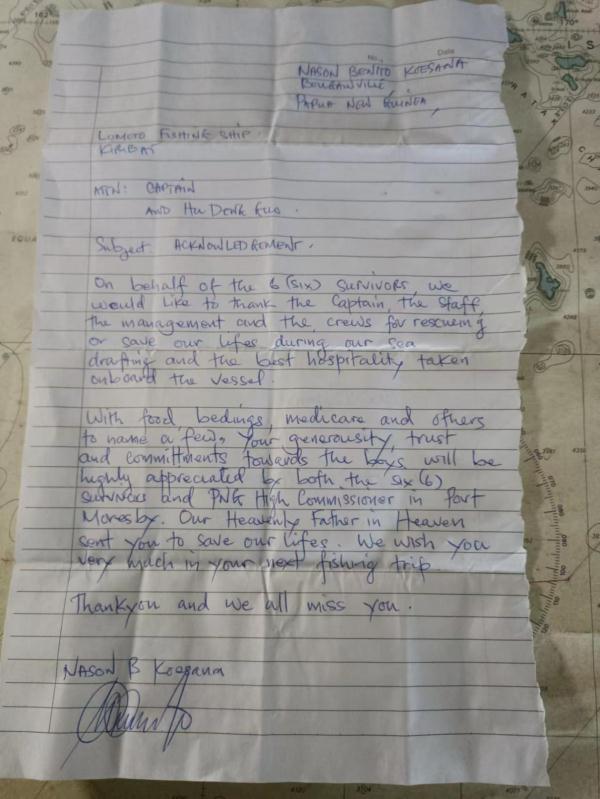 No. Date
NASON BENITO KOESANA
BOUGANVILLE,
PAPUA NEW GUINEA,
LOMOTO FISHING SHIP.
KIRIBAT
ATTN: CAPTAIN
AND HU DENK
Subject: ACKNOWLEDGEMENT.
On behalf of the 6 (six) survivors, we
would like to thank the Captain, the staff,
the management and the crews for rescueing
or save our lifes during our sea
drafting and the best hospitality taken
onboard the vessel.
With food, bedings, medicare and others
to name a few, Your generousity, trust
and committments towards the boys will be
highly appreciated by both the six (6)
survivors and PNG High Commissioner in Port
Moresby. Our Heavenly Father in Heaven
sent you to save our lifes. We wish you
very much in your next fishing trip.
Thankyou and we all miss you.
NASON B Koesana